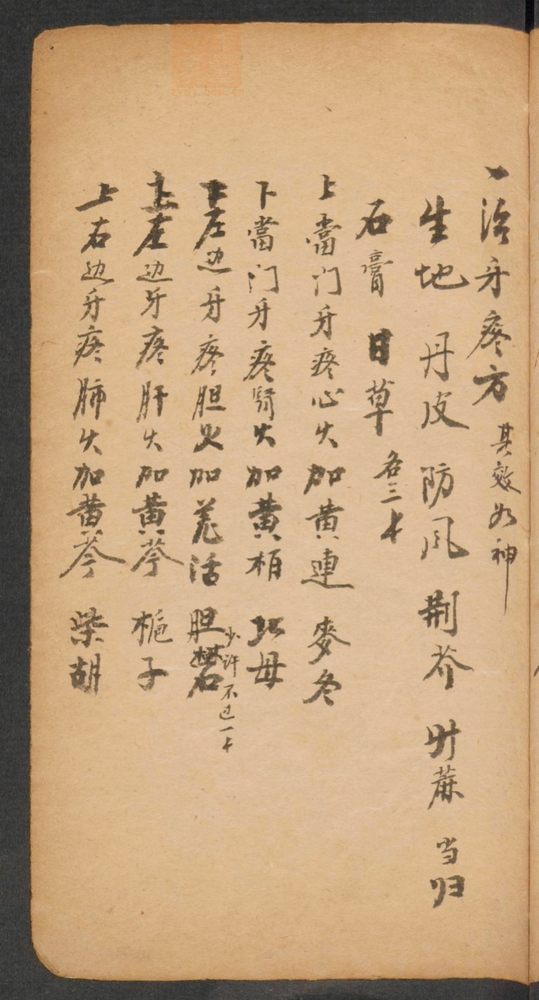 一治牙疼方 其效如神
生地 丹皮 防风 荆芥 升蔴 当归
石膏 日草 各三卞
上當门牙疼心火加黄連 麥冬
下當门牙疼腎火加黄栢 知母
上左边牙疼胆火加羌活 胆礬 少许不过一卞
上左边牙疼肝火加黄芩 栀子
上右边牙疼肺火加黄芩 柴胡